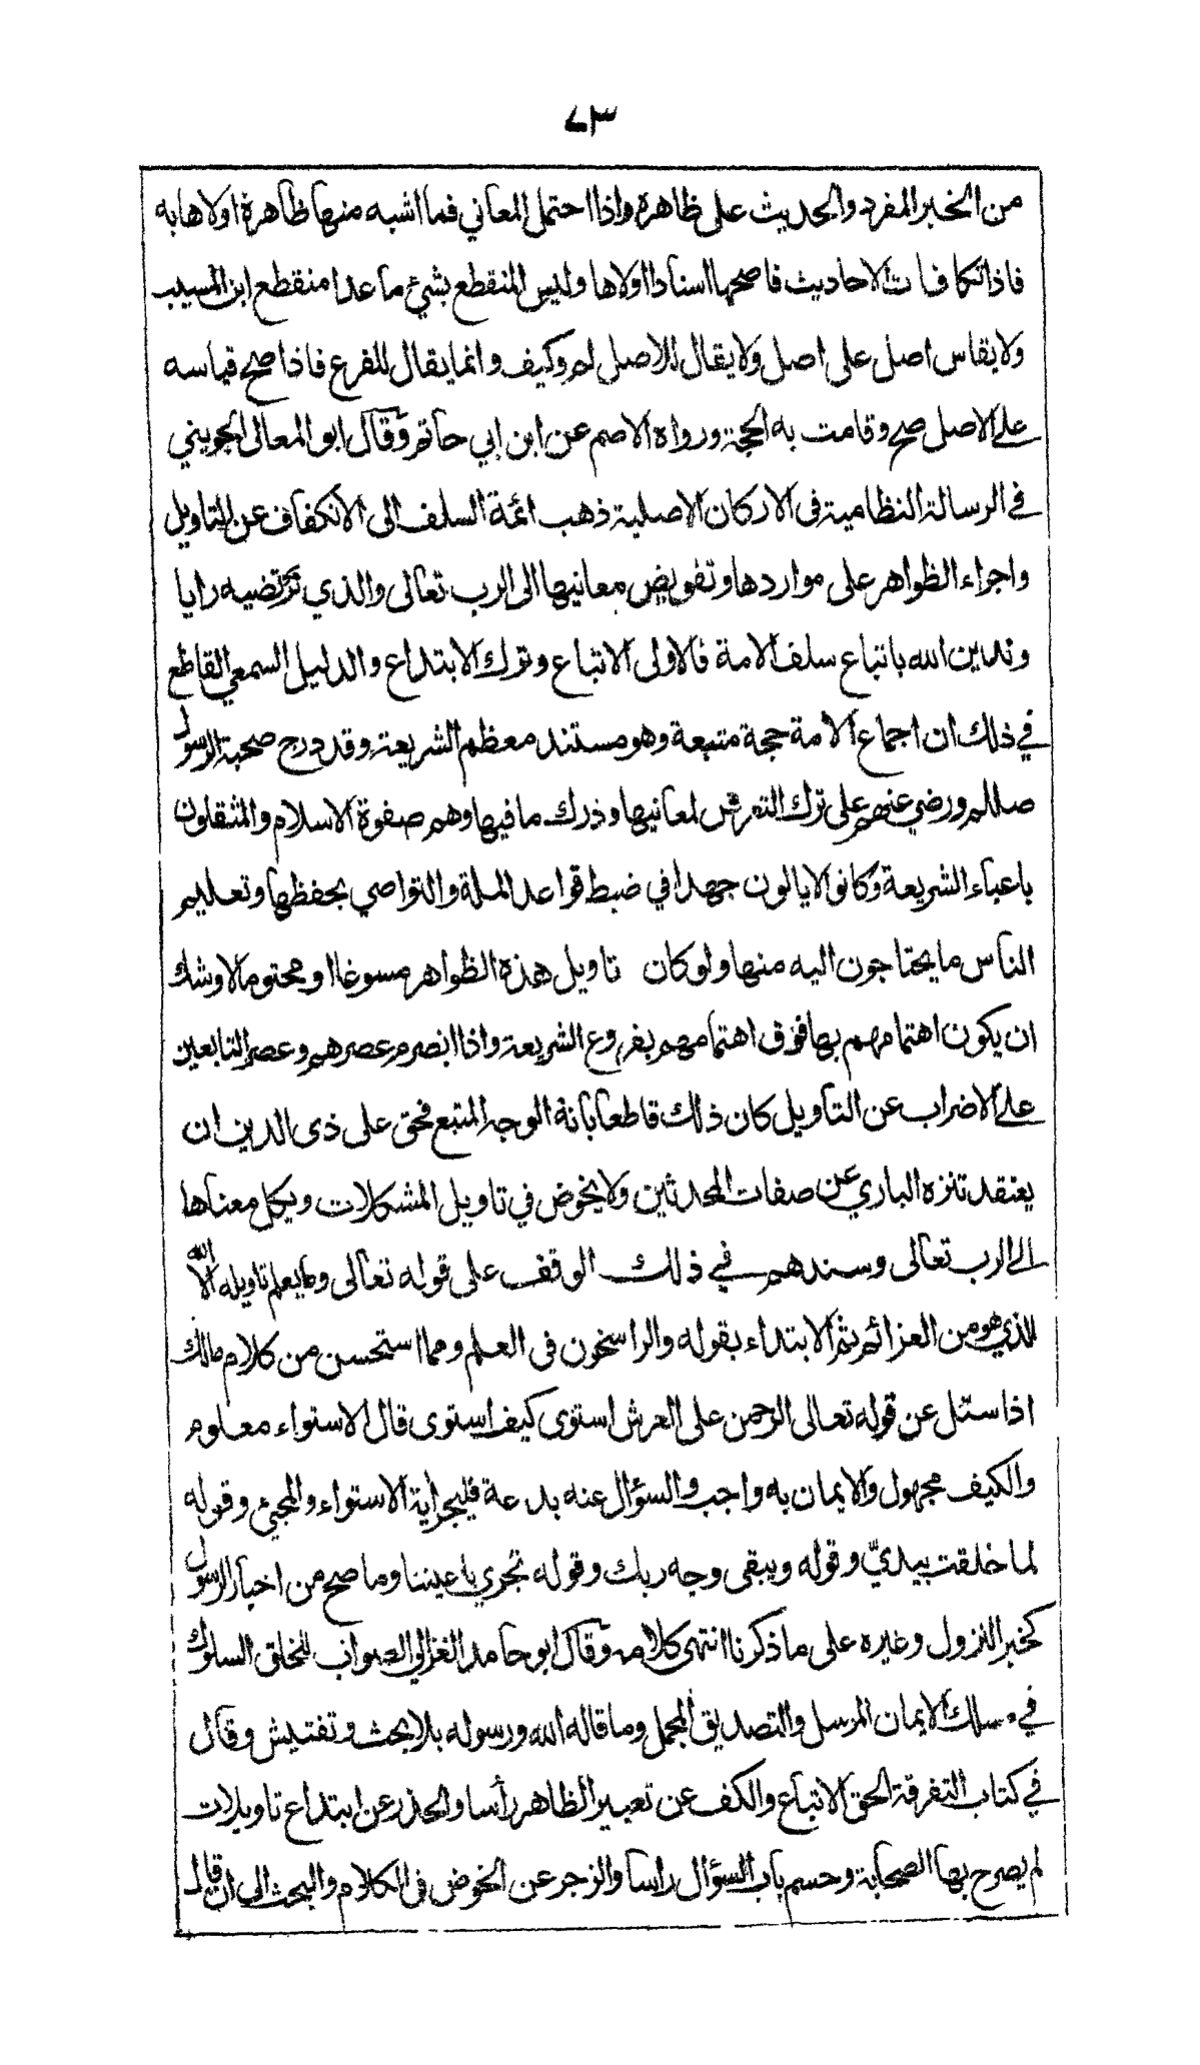 ٧٣
من الخبر المفرد والحديث على ظاهره واذا احتمل المعاني فما اشبه منها ظاهرة اولاها به
فاذا تكافات الاحاديث فاصحها اسنادا اولاها وليس المنقطع بشئ ما عدا منقطع ابن المسيب
ولا يقاس اصل على اصل ولا يقال للاصل لم وكيف وانما يقال للفرع فاذا صح قياسه
على الاصل صح وقامت به الحجة ورواه الاصم عن ابن ابي حاتم وقال ابو المعالى الجويني
في الرسالة النظامية فى الاركان الاصلية ذهب ائمة السلف الى الانكفاف عن التاويل
واجراء الظواهر على مواردها وتفويض معانيها الى الرب تعالى والذي نرتضيه رايا
وندين الله باتباع سلف الامة فالاولى الاتباع وترك الابتداع والدليل السمعي القاطع
في ذلك ان اجماع الامة حجة متبعة وهو مستند معظم الشريعة وقد درج صحبة الرسول
صللم ورضي عنهم على ترك التعرض لمعانيها وذرك ما فيها وهم صفوة الاسلام والمثقلون
باعباء الشريعة وكانوا لا يالون جهدا في ضبط قواعد الملة والتواصي بحفظها وتعليم
الناس ما يحتاجون اليه منها ولو كان تاويل هذه الظواهر مسوغا او محتوما لاوشك
ان يكون اهتمامهم بها فوق اهتمامهم بفروع الشريعة واذا انصرم عصرهم وعصر التابعين
على الاضراب عن التاويل كان ذلك قاطعا بانه الوجه المتبع فحق على ذى الدين ان
يعتقد تنزه الباري عن صفات المحدثين ولا يخوض في تاويل المشكلات ويكل معناها
الى الرب تعالى وسندهم في ذلك الوقف على قوله تعالى وما يعلم تاويله الا الله
الذي هو من العزائم ثم الابتداء بقوله والراسخون فى العلم ومما استحسن من كلام مالك
اذا سئل عن قوله تعالى الرحمن على العرش استوى كيف استوى قال الاستواء معلوم
والكيف مجهول والايمان به واجب والسؤال عنه بدعة فليجر اية الاستواء والمجئ وقوله
لما خلقت بيديّ وقوله ويبقى وجه ربك وقوله تجري باعيننا وما صح من اخبار الرسول
كخبر النزول وغيره على ما ذكرنا انتهى كلامه وقال ابو حامد الغزالي الصواب للخلق السلوك
في مسلك الايمان المرسل والتصديق المجمل وما قاله الله ورسوله بلا بحث وتفتيش وقال
في كتاب التفرقة الحق الاتباع والكف عن تعبير الظاهر رأسا والحذر عن ابتداع تاويلات
لم يصرح بها الصحابة وحسم باب السؤال راسا والزجر عن الخوض فى الكلام والبحث الى ان قال